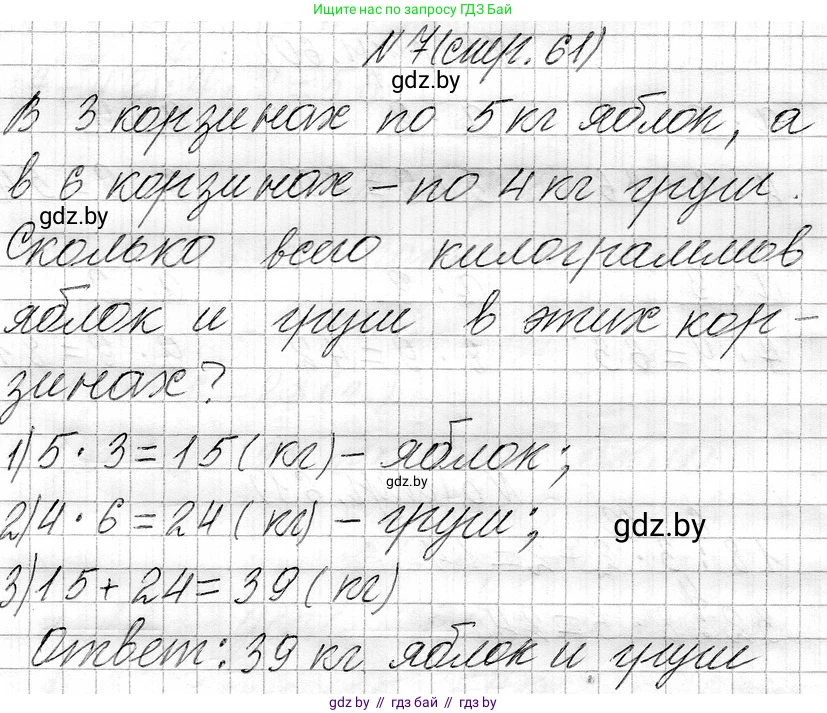 Ищите нас по запросу ГДЗ Бай
N 7 (стр. 61)
gdz.by
В 3 корзинах по 5 кг яблок, а
в 6 корзинах – по 4 кг груш.
gdz.by
Сколько всего килограммов
яблок и груш в этих кор-
зинах?
1) 5 · 3 = 15 ( кг) – яблок;
gdz.by
2) 4 · 6 = 24 ( кг) – груш;
gdz.by
3) 15 + 24 = 39 ( кг)
Ответ: 39 кг яблок и груш
gdz.by // гдз бай // gdz.by